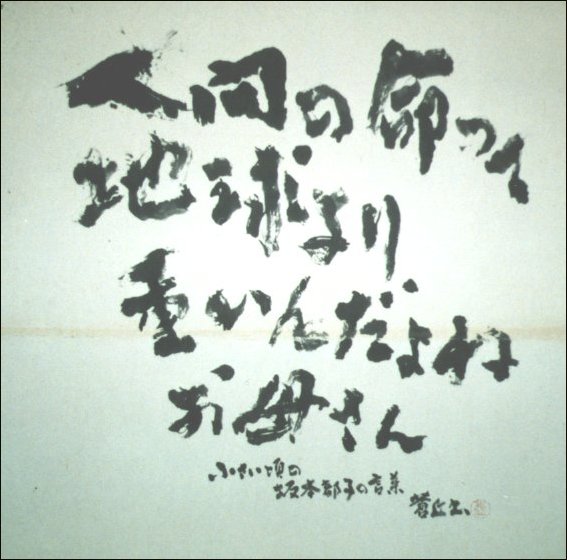 人間の命って
地球より
重いんだよね
お母さん
小さい頃の
坂本都子の言葉